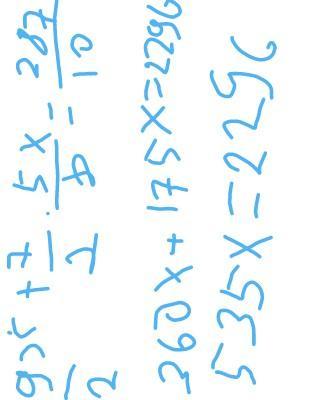 9x/2 + 7/2 · 5x/8 = 287/10
360x + 175x = 2296
535x = 2296